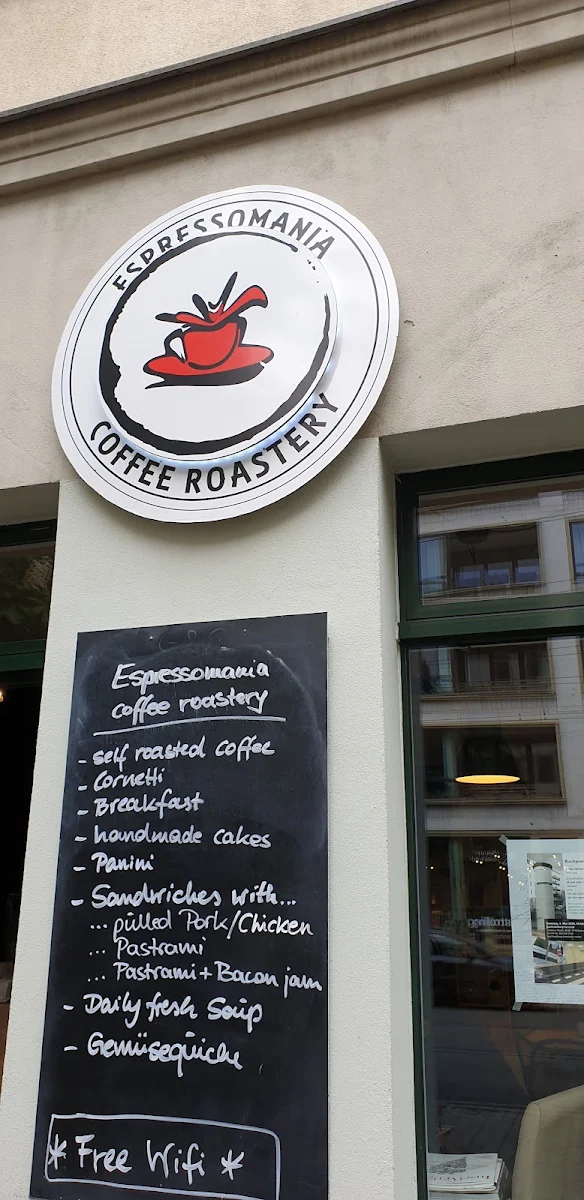 ESPRESSOMANIA
COFFEE ROASTERY
Espressomania
coffee roastery
- self roasted coffee
- Cornetti
- Breakfast
- handmade cakes
- Panini
- Sandwiches with...
... pulled Pork/Chicken
... Pastrami
... Pastrami + Bacon jam
- Daily fresh Soup
- Gemüsequiche
* Free Wifi *